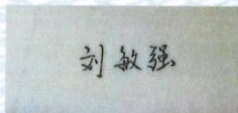 刘敏强